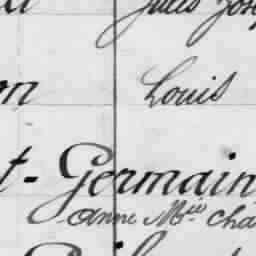 Jules Jos
on
Louis
t-Germain
Anne Mie Cha